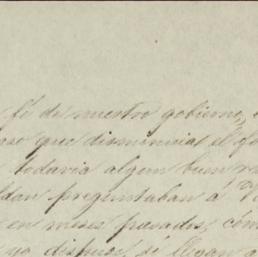 fé de nuestro gobierno,
que disminuia el
todavia algun buen
preguntaban á
en meses pasados, cóm
ya despues, si llegan a